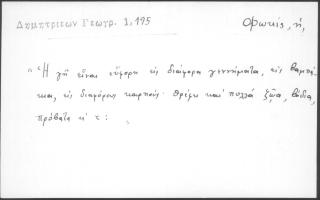 Δημητριέων Γεωγρ. 1,195
Φωκίς, ἡ,
"Ἡ γῆ εἶναι εὔφορη εἰς διάφορα γεννήματα, εἰς βαμπά-
κια, εἰς διαφόρους καρπούς· θρέφει καὶ πολλὰ ζῷα, βώδια,
πρόβατα κ' τ: